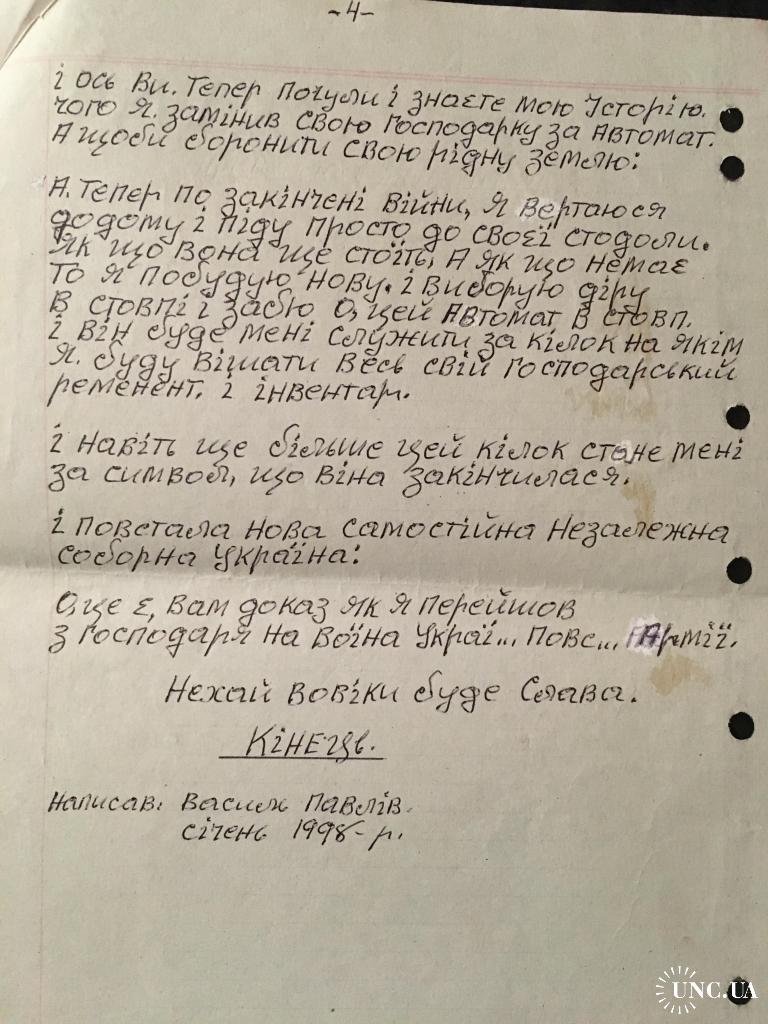 -4-
і ось Ви. Тепер почули і знаєте мою Історію.
чого я. замінив свою Господарку за Автомат.
А щоби боронити свою рідну землю:
А. Тепер по закінчені війни, я вертаюся
додому і піду просто до своєї стодоли.
Як що вона ще стоїть, А як що немає
То я побудую нову. і виборую діру
В стовпі і забю О, цей Автомат в стовп.
і він буде мені служити за кілок на якім
я. буду вішати весь свій господарський
ременент. і інвентар.
і навіть ще більше цей кілок стане мені
за символ, що віна закінчилася.
і повстала нова самостійна незалежна
соборна Україна:
О, це є, Вам доказ як я перейшов
з господаря на воїна Украї... Повс... Армії.
Нехай вовіки буде Слава.
Кінець.
Написав: Василь Павлів.
січень 1998-р.
UNC.UA